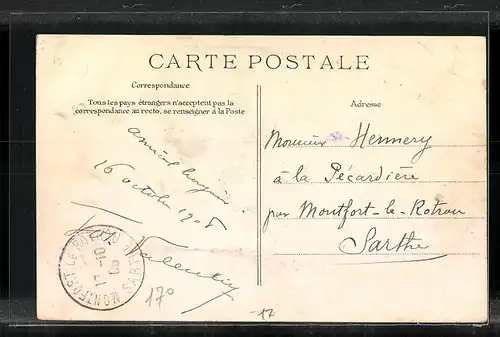 CARTE POSTALE
Correspondance
Tous les pays étrangers n'acceptent pas la
correspondance au recto, se renseigner à la Poste
Adresse
16 octobre 1908
Monsieur Hemmery
à la Pécardière
par Montfort-le-Rotrou
Sarthe
MONTFORT LE ROTROU SARTHE
17-10
08
170
-17